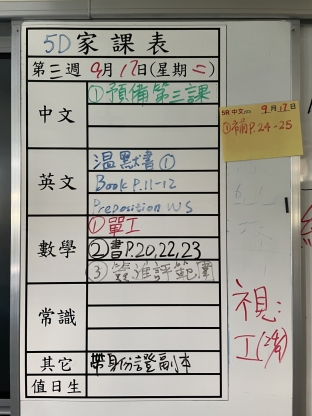 5D 家課表
第三週 9月17日(星期二)
中文
①預備第三課
英文
温默書①
Book P.11-12
Preposition WS
數學
①單工
②書P.20,22,23
常識
其它
帶身份證副本
值日生
5R 中文 9月17日
P.24-25
視: